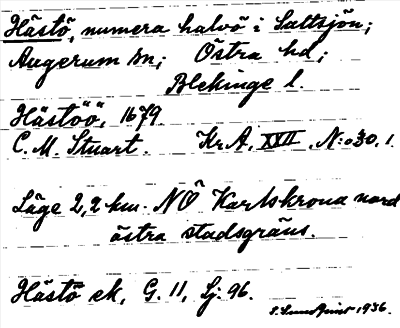 Hästö, numera halvö i Saltsjön;
Augerum sn; Östra hd;
Blekinge l.
Hästöö, 1679
C. M. Stuart. Kr A, XVII, N:o 30, 1.
Läge 2,2 km. NÖ Karlskrona nord
östra stadsgräns.
Hästö ek, G. 11, Lj. 96.
S. Lundquist 1936.